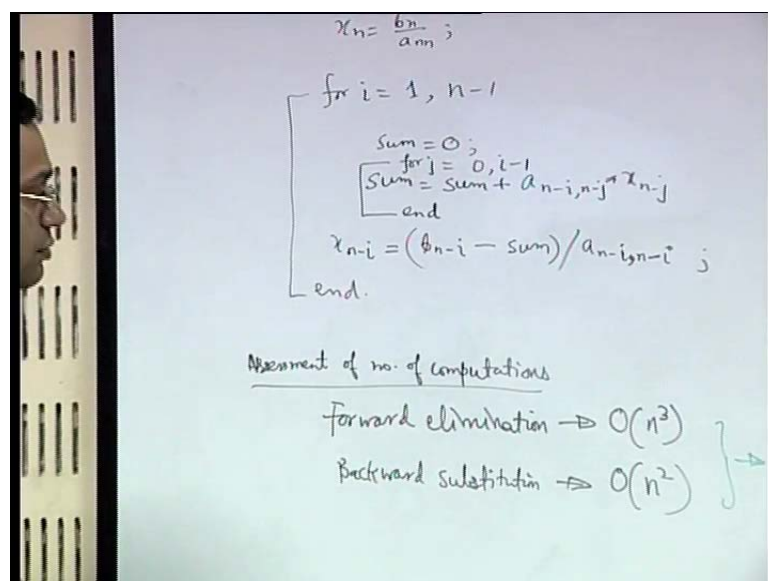 xn = bn / ann ;
for i = 1, n-1
sum = 0 ;
for j = 0, i-1
sum = sum + a n-i, n-j * x n-j
end
x n-i = (b n-i - sum) / a n-i, n-i ;
end.
Assessment of no. of computations
Forward elimination → O(n³)
Backward substitution → O(n²)